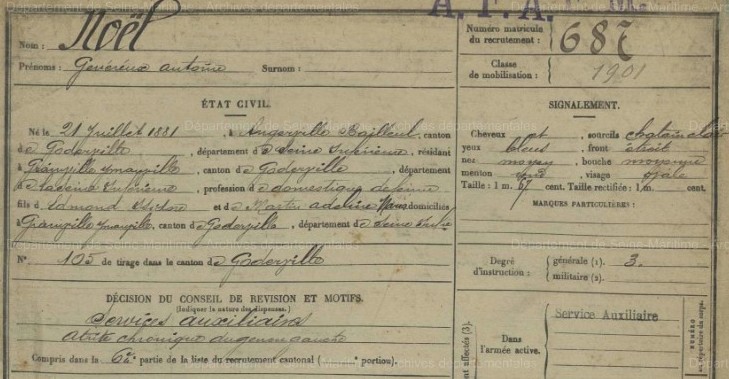 A. F. A.
Noël
Nom :
Prénoms : Généreux Antoine Surnom :
Numéro matricule du recrutement : 687
Classe de mobilisation : 1901
ÉTAT CIVIL.
Né le 21 Juillet 1881, à Angerville Bailleul, canton
de Goderville, département de Seine Inférieure, résidant
à Grainville Ymauville, canton de Goderville, département
de la Seine Inférieure, profession de domestique de ferme
fils d'Edmond et de Martin Adeline domiciliés
Grainville Ymauville, canton de Goderville, département de Seine Infre
No 105 de tirage dans le canton de Goderville
DÉCISION DU CONSEIL DE REVISION ET MOTIFS.
(Indiquer la nature des dispenses.)
Services auxiliaires
chronique du genou gauche
Compris dans la 6e partie de la liste du recrutement cantonal ( portion).
SIGNALEMENT.
Cheveux et sourcils chatain clair
yeux bleus, front étroit
nez moyen, bouche moyenne
menton rond, visage ovale
Taille : 1 m. cent. Taille rectifiée : 1 m. cent.
MARQUES PARTICULIÈRES :
Degré d'instruction : générale (1). 3.
militaire (2).
Service Auxiliaire
Dans l'armée active.
affectés (3).
NUMÉRO
répertoire du corps.
Départementales de Seine-Maritime - Archives départementales